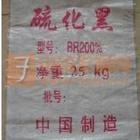 硫化黑
型号：BR200%
净重 25 kg
批号：
中国制造